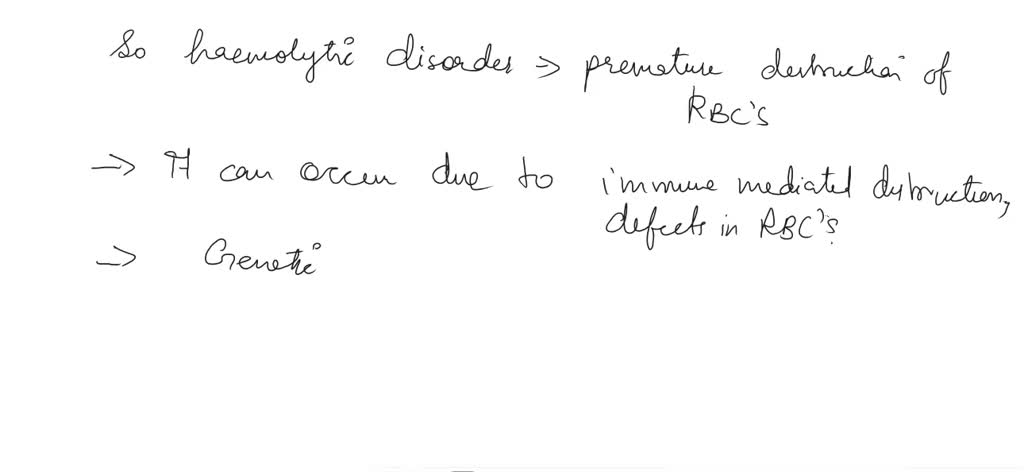 So haemolytic disorder => premature destruction of
RBC's
→ It can occur due to immune mediated dybruction,
defects in RBC's.
→ Genetic